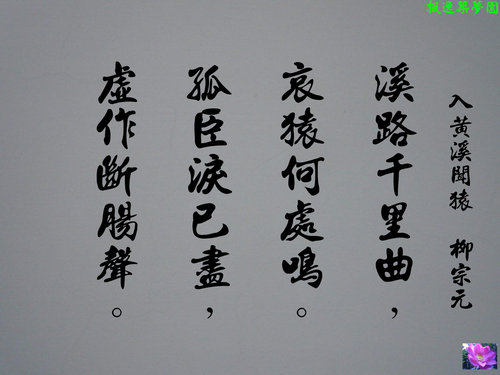 入黃溪聞猿 柳宗元
溪路千里曲，
哀猿何處鳴。
孤臣淚已盡，
虛作斷腸聲。
楓逸築夢園